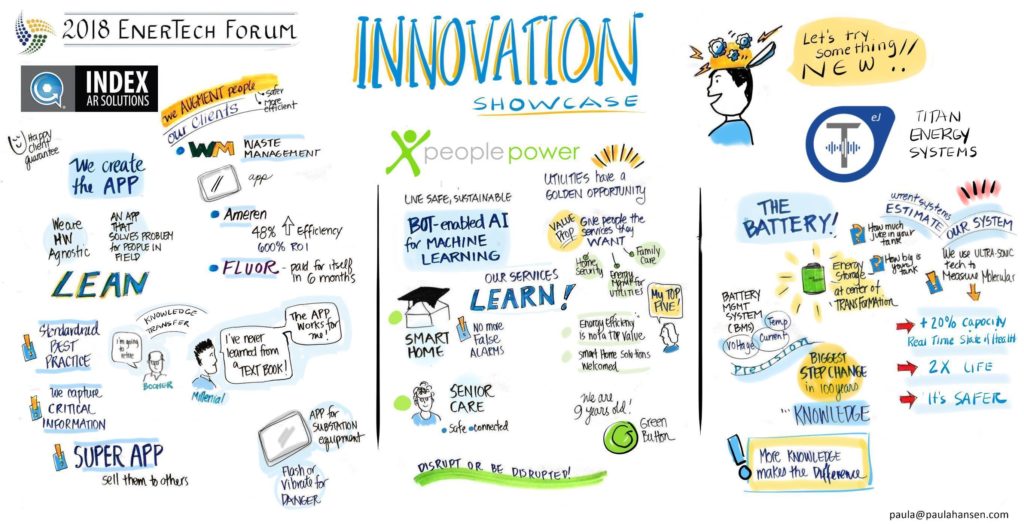 2018 ENERTECH FORUM
INNOVATION
SHOWCASE
Let's try
something!!
NEW!!
INDEX
AR SOLUTIONS
we AUGMENT people
safer
more
efficient
our clients
Happy
client
guarantee
We create
the APP
WM WASTE
MANAGEMENT
app
We are
HW
Agnostic
AN APP
THAT
SOLVES PROBLEM
FOR PEOPLE IN
FIELD
Ameren
48% efficiency
600% ROI
FLUOR - paid for itself
in 6 months
LEAN
Standardized
BEST
PRACTICE
KNOWLEDGE
TRANSFER
I'm going
to
retire
BOOMER
Millenial
I've never
learned from
a TEXT BOOK!
The APP
works for
me!
We capture
CRITICAL
INFORMATION
SUPER APP
sell them to others
APP for
SUBSTATION
equipment
Flash or
vibrate for
DANGER
people power
LIVE SAFE, SUSTAINABLE
BOT-enabled AI
for MACHINE
LEARNING
UTILITIES have a
GOLDEN OPPORTUNITY
VALUE
PROP
Give people the
services they
WANT
Home
Security
Energy
MGMNT for
UTILITIES
Family
Care
OUR SERVICES
LEARN!
SMART
HOME
No more
False
ALARMS
My TOP
FIVE!
Energy Efficiency
is not a TOP value
Smart Home Solutions
Welcomed
SENIOR
CARE
Safe connected
We are
9 years old!
Green
Button
DISRUPT OR BE DISRUPTED!
T eJ
TITAN
ENERGY
SYSTEMS
THE
BATTERY!
current systems
ESTIMATE
How much
juice in your
tank?
How big is
your tank
OUR SYSTEM
We use ULTRA-SONIC
tech to
Measure Molecular
Energy
Storage
at center of
TRANSFORMATION
BATTERY
MGMT
SYSTEM
(BMS)
Temp
Voltage
Current
Precision
BIGGEST
STEP CHANGE
in 100 years
... KNOWLEDGE
+ 20% CAPACITY
Real Time State of Health
2X LIFE
It's SAFER
More KNOWLEDGE
makes the Difference
paula@paulahansen.com